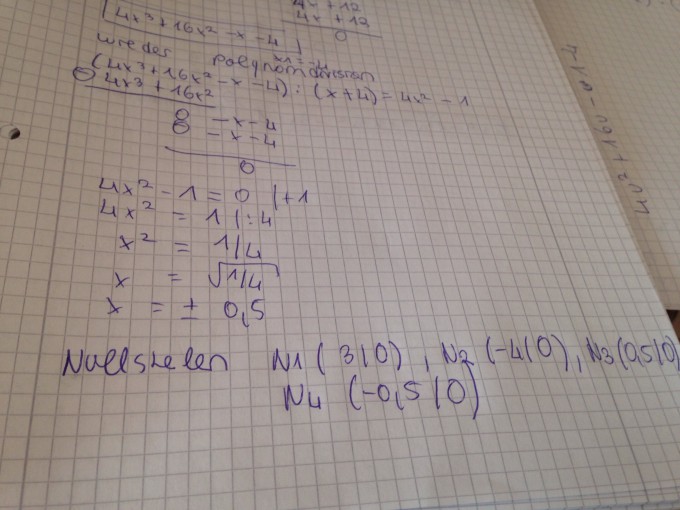 4x + 12
4x + 12
0
4x³ + 16x² - x - 4
wieder Polynomdivision
(4x³ + 16x² - x - 4) : (x + 4) = 4x² - 1
4x³ + 16x²
0 - x - 4
0 - x - 4
0
4x² - 1 = 0 | +1
4x² = 1 | : 4
x² = 1/4
x = √1/4
x = ± 0,5
Nullstellen N1 ( 3 | 0) , N2 (-4 | 0) , N3 (0,5 | 0)
N4 (-0,5 | 0)